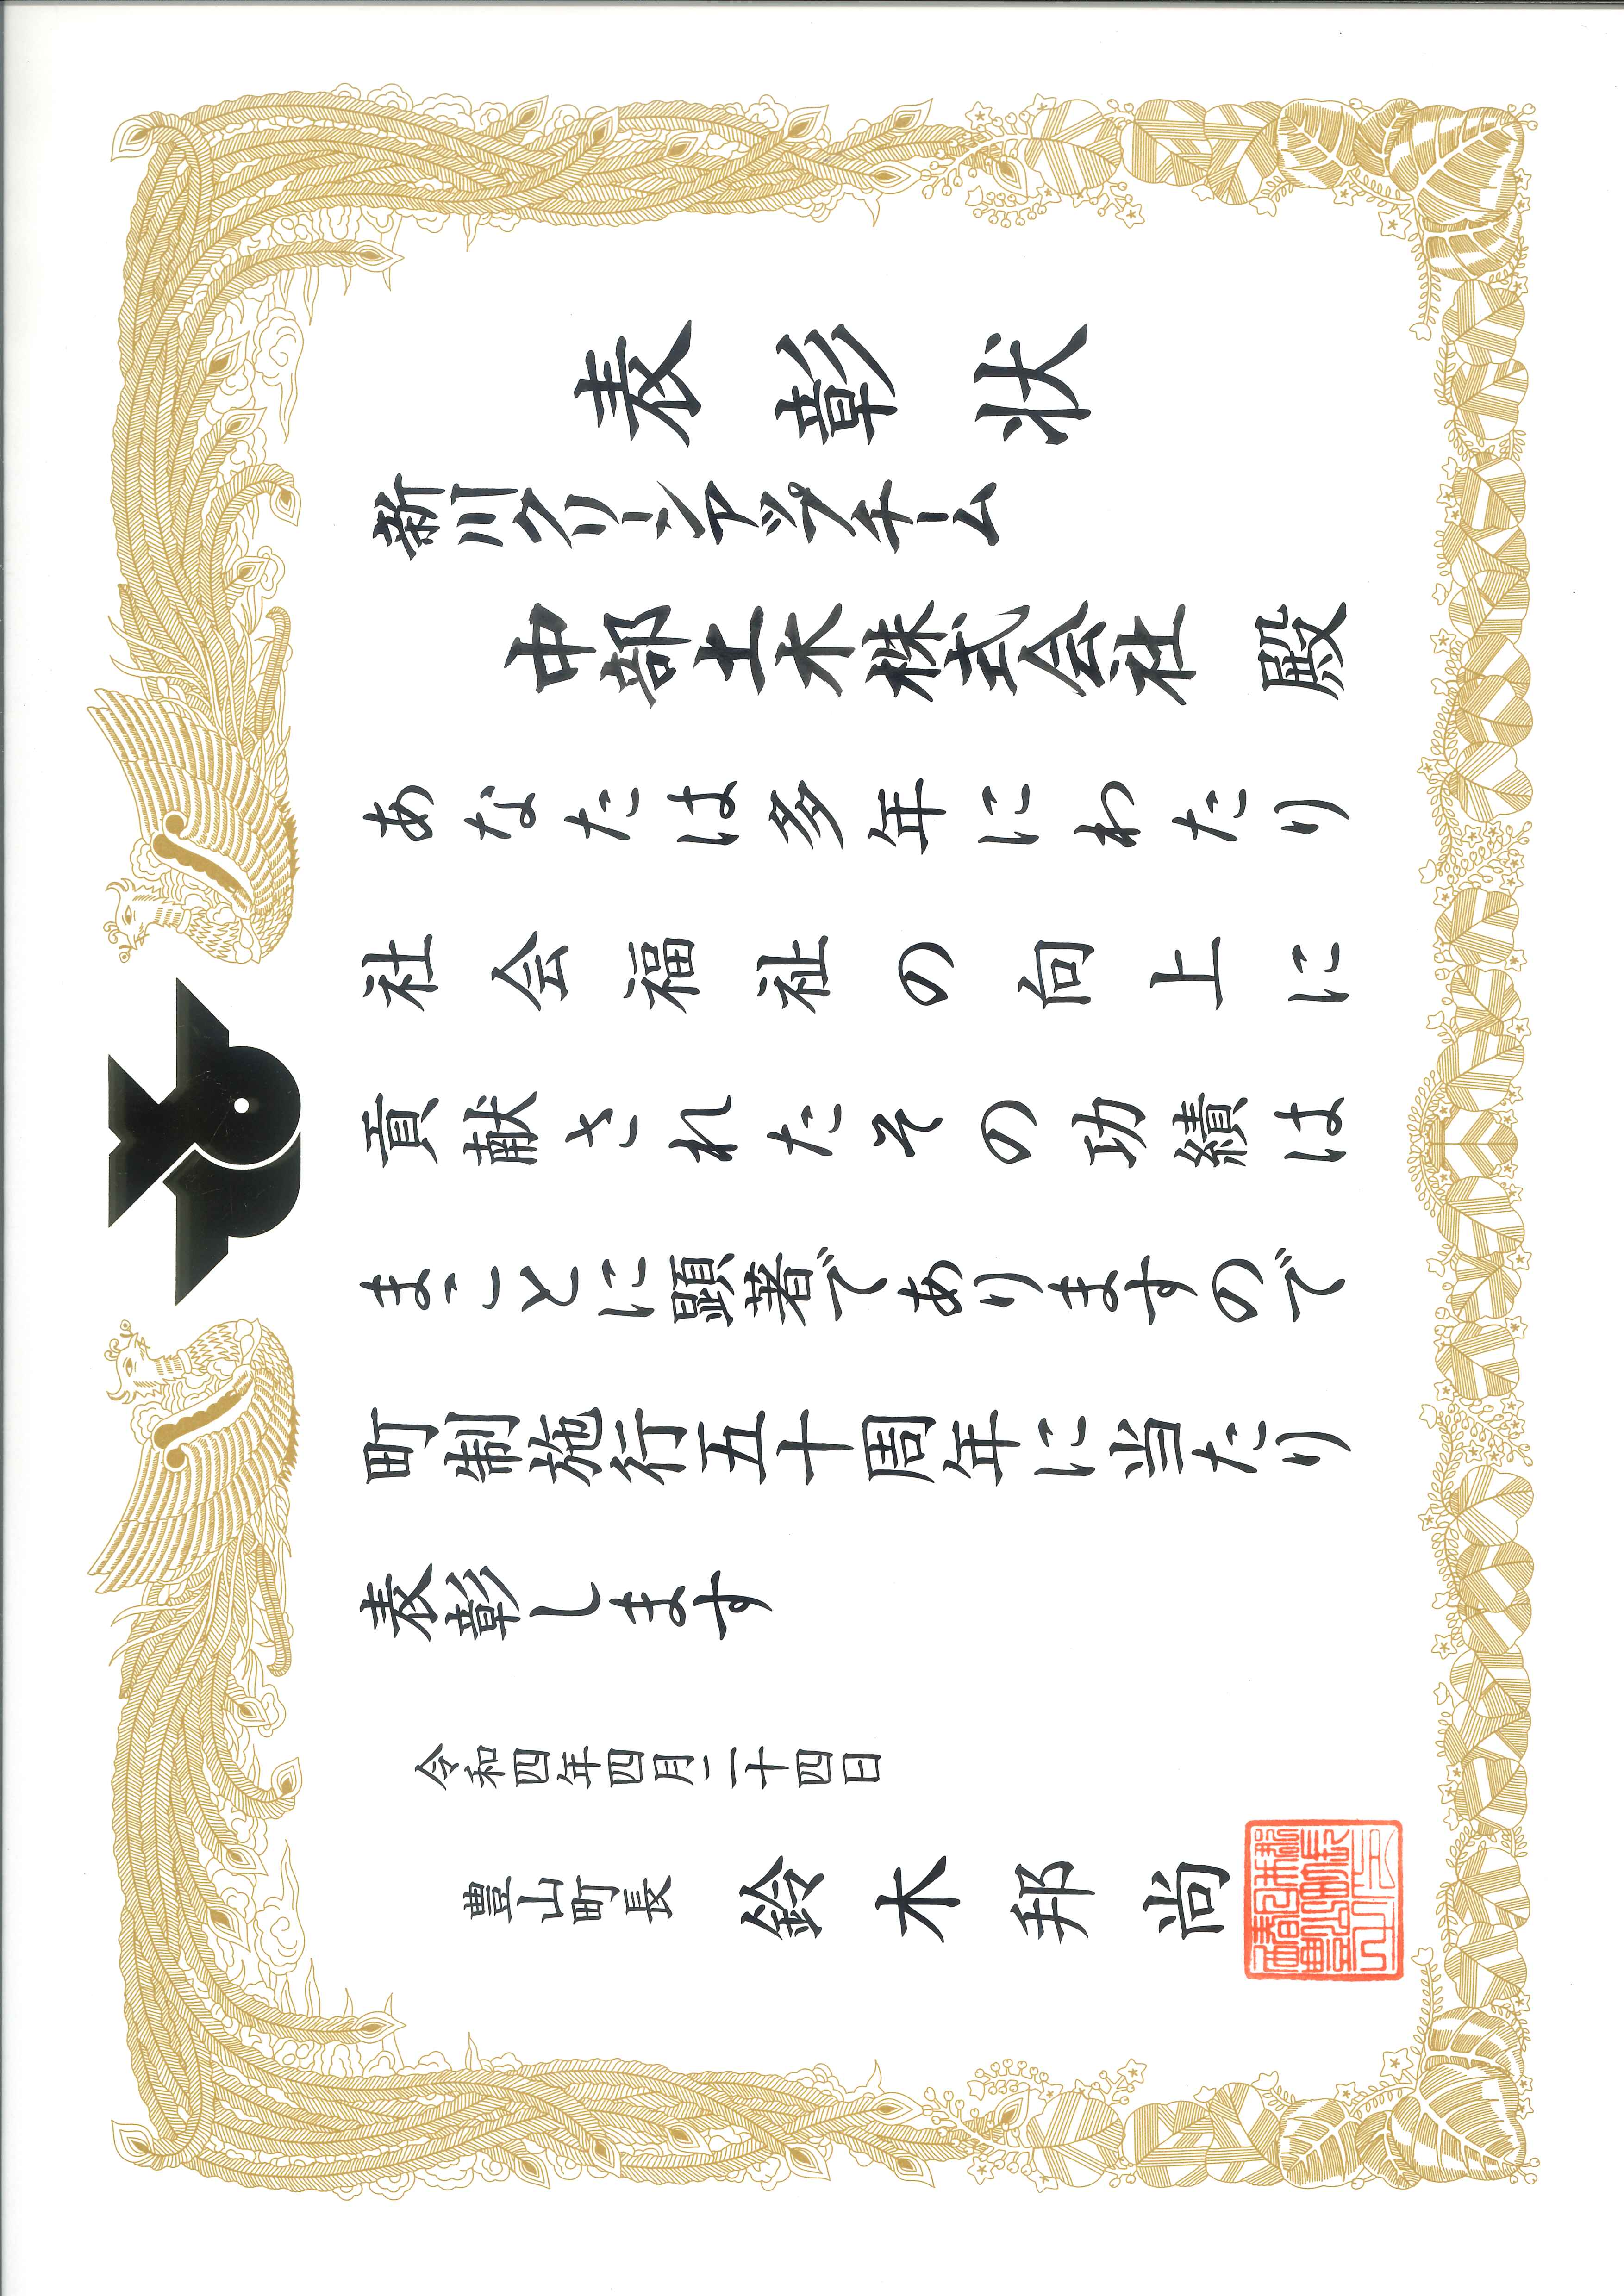 表彰状
新川クリーンアップチーム
中部土木株式会社 殿
あなたは多年にわたり
社会福祉の向上に
貢献されたその功績は
まことに顕著でありますので
町制施行五十周年に当たり
表彰します
令和四年四月二十四日
豊山町長 鈴木邦尚